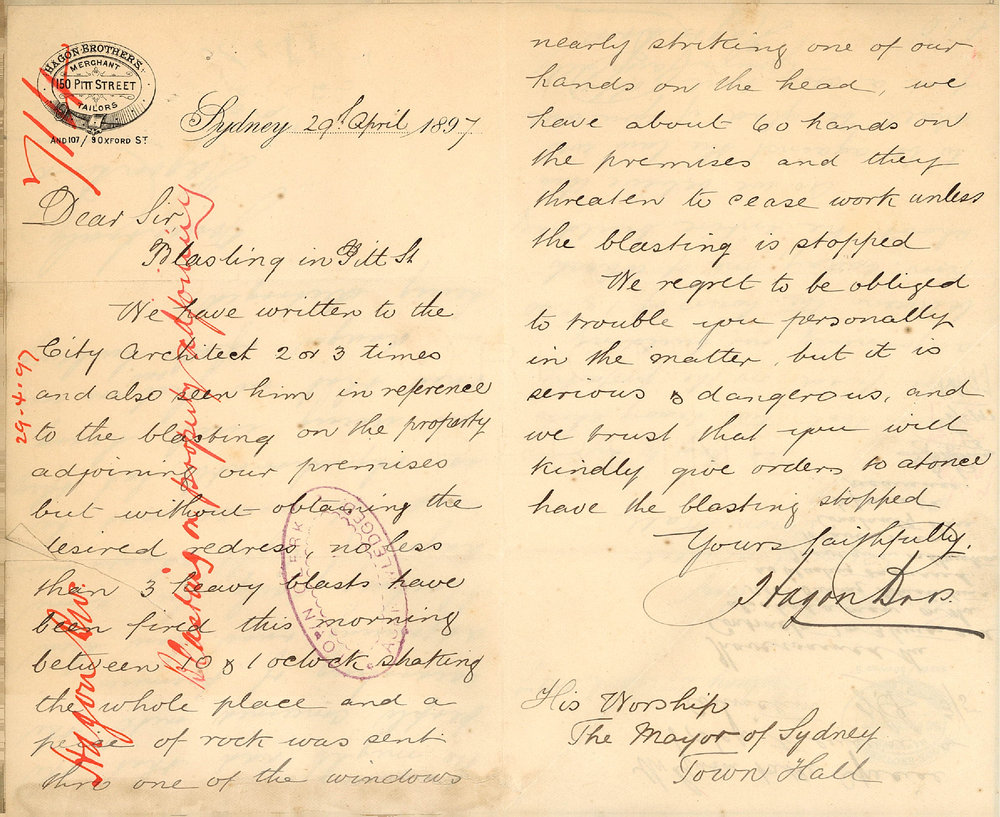 HAGON BROTHERS,
MERCHANT
150 PITT STREET
TAILORS
AND 107/9 OXFORD ST
Sydney 29th April 1897
Dear Sir,
Blasting in Pitt St
We have written to the
City Architect 2 or 3 times
and also seen him in reference
to the blasting on the property
adjoining our premises
but without obtaining the
desired redress no less
than 3 heavy blasts have
been fired this morning
between 10 & 1 oclock shaking
the whole place and a
peice of rock was sent
thro one of the windows
nearly striking one of our
hands on the head, we
have about 60 hands on
the premises and they
threaten to cease work unless
the blasting is stopped
We regret to be obliged
to trouble you personally
in the matter, but it is
serious & dangerous, and
we trust that you will
kindly give orders to atonce
have the blasting stopped
Yours faithfully.
Hagon Bros.
His Worship
The Mayor of Sydney
Town Hall
29.4.97
Hagon Bros
Blasting on property adjoining
TOWN CLERK